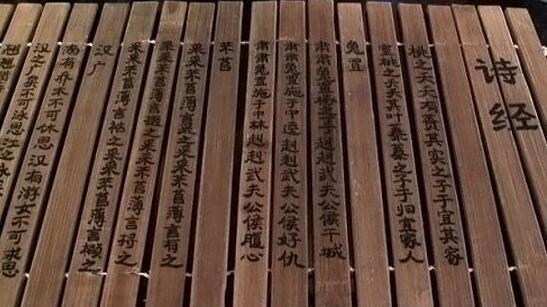 诗经
桃之夭夭有蕡其实之子于宜其家
室桃之夭夭其叶蓁蓁之子于归宜家人
兔罝
肃肃兔罝椓丁赳赳武夫公侯干城
肃肃兔罝施于中逵赳赳武夫公侯好仇
肃肃兔罝施于中林赳赳武夫公侯腹心
芣苢
采采芣苢薄言采之采采芣苢薄言有之
采采芣苢薄言掇之采采芣苢薄言捋之
采采芣苢薄言袺之采采芣苢薄言襭之
汉广
南有乔木不可休思汉有游女不可求思
汉之广矣不可泳思江之永
翘翘错